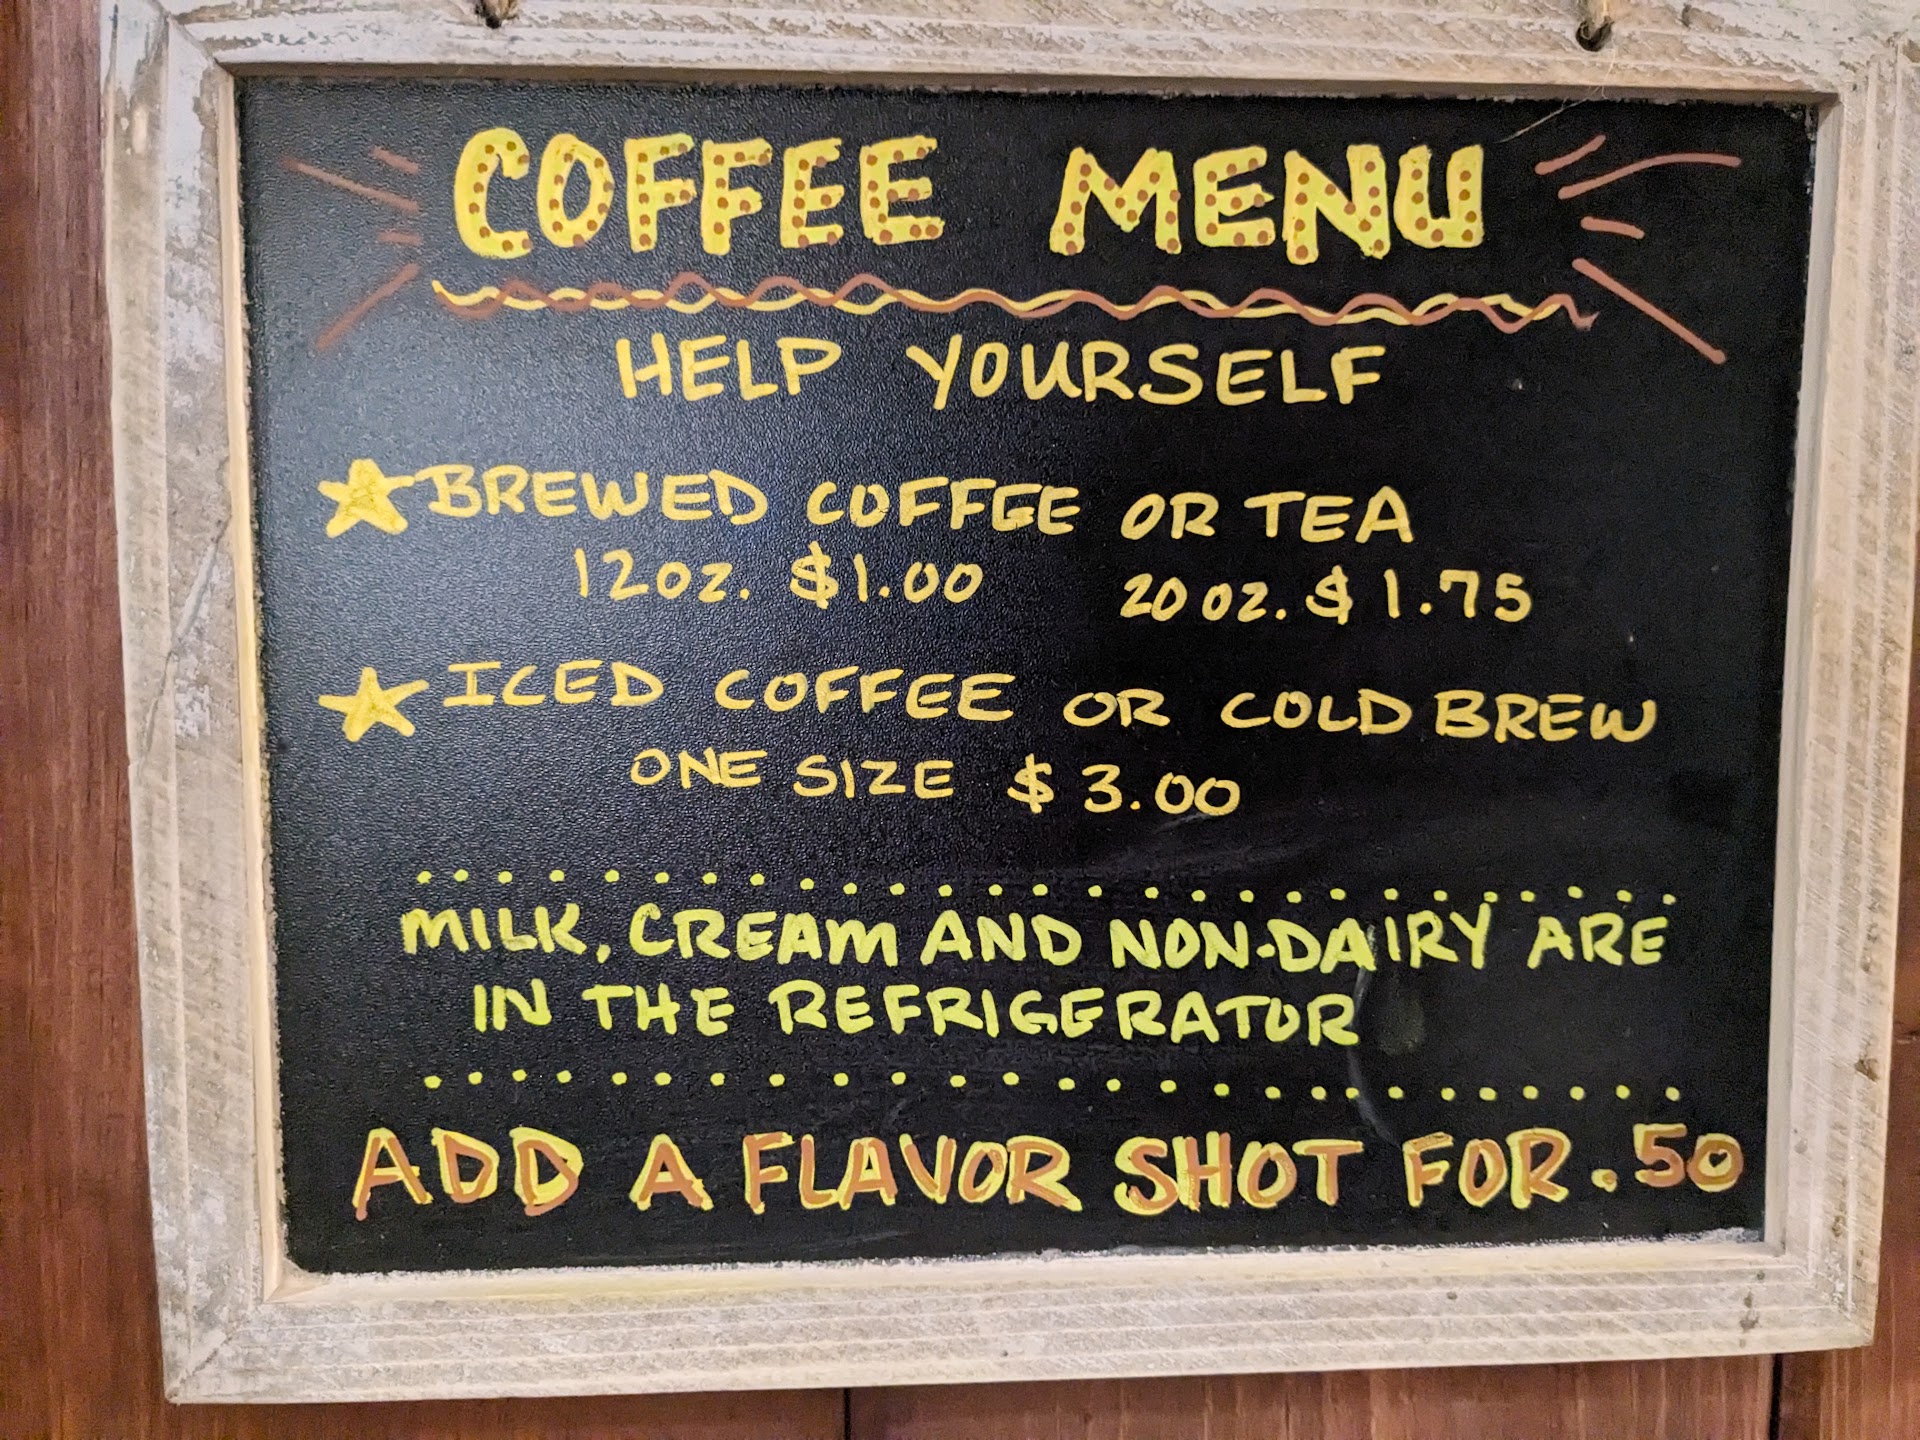 COFFEE MENU
HELP YOURSELF
BREWED COFFEE OR TEA
12oz. $1.00 20oz. $1.75
ICED COFFEE OR COLD BREW
ONE SIZE $3.00
MILK, CREAM AND NON-DAIRY ARE
IN THE REFRIGERATOR
ADD A FLAVOR SHOT FOR .50